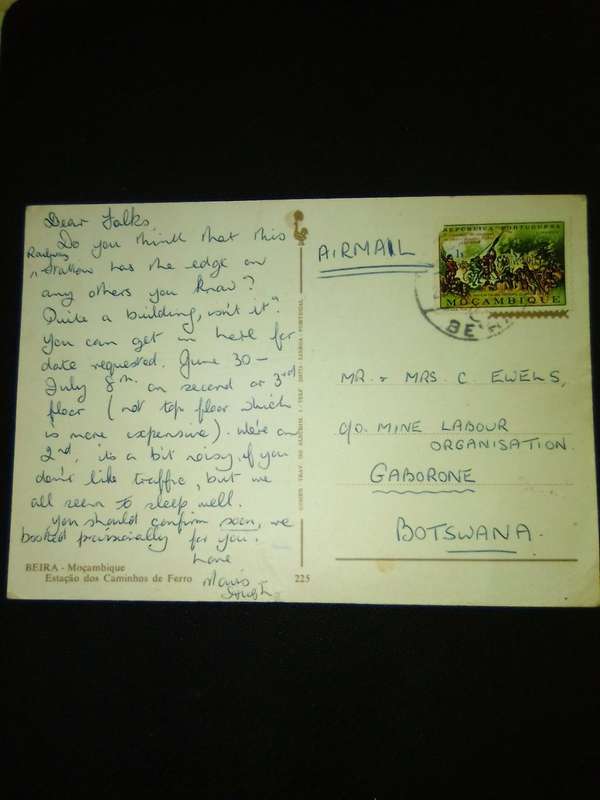 Dear Folks,
Do you think that this
Railway
station has the edge on
any others you know?
Quite a building, isn't it"
You can get in here for
date requested. June 30 -
July 8th on second or 3rd
floor (not top floor which
is more expensive). We're on
2nd, its a bit noisy if you
don't like traffic, but we
all seem to sleep well.
You should confirm soon, we
booked provisionally for you.
Love
Mavis
BEIRA - Moçambique
Estação dos Caminhos de Ferro
225
AIRMAIL
REPÚBLICA PORTUGUESA
1$
MOÇAMBIQUE
BEIRA
MR. & MRS. C. EWELS,
c/o. MINE LABOUR
ORGANISATION.
GABORONE
BOTSWANA.